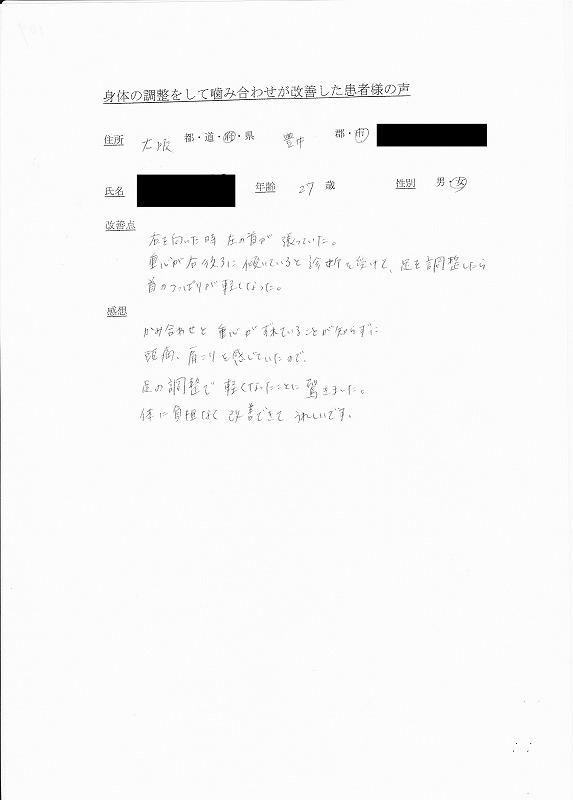 身体の調整をして噛み合わせが改善した患者様の声
住所 大阪 都・道・府・県 豊中 郡・市
氏名 年齢 27 歳 性別 男・女
改善点
右を向いた時 左の首が 張っていた。
重心が右後ろに 傾いていると 診断を受けて、足を調整したら
首のつっぱりが 軽くなった。
感想
かみ合わせと 重心が ずれていることが 知らずに
頭痛、肩こりを感じていたので、
足の調整で 軽くなったことに 驚きました。
体に負担なく 改善できて うれしいです。